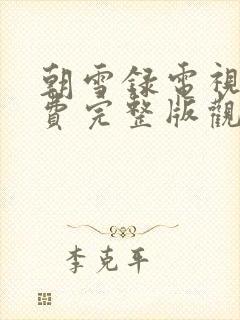 朝雪録電視
費完整版觀
李克平